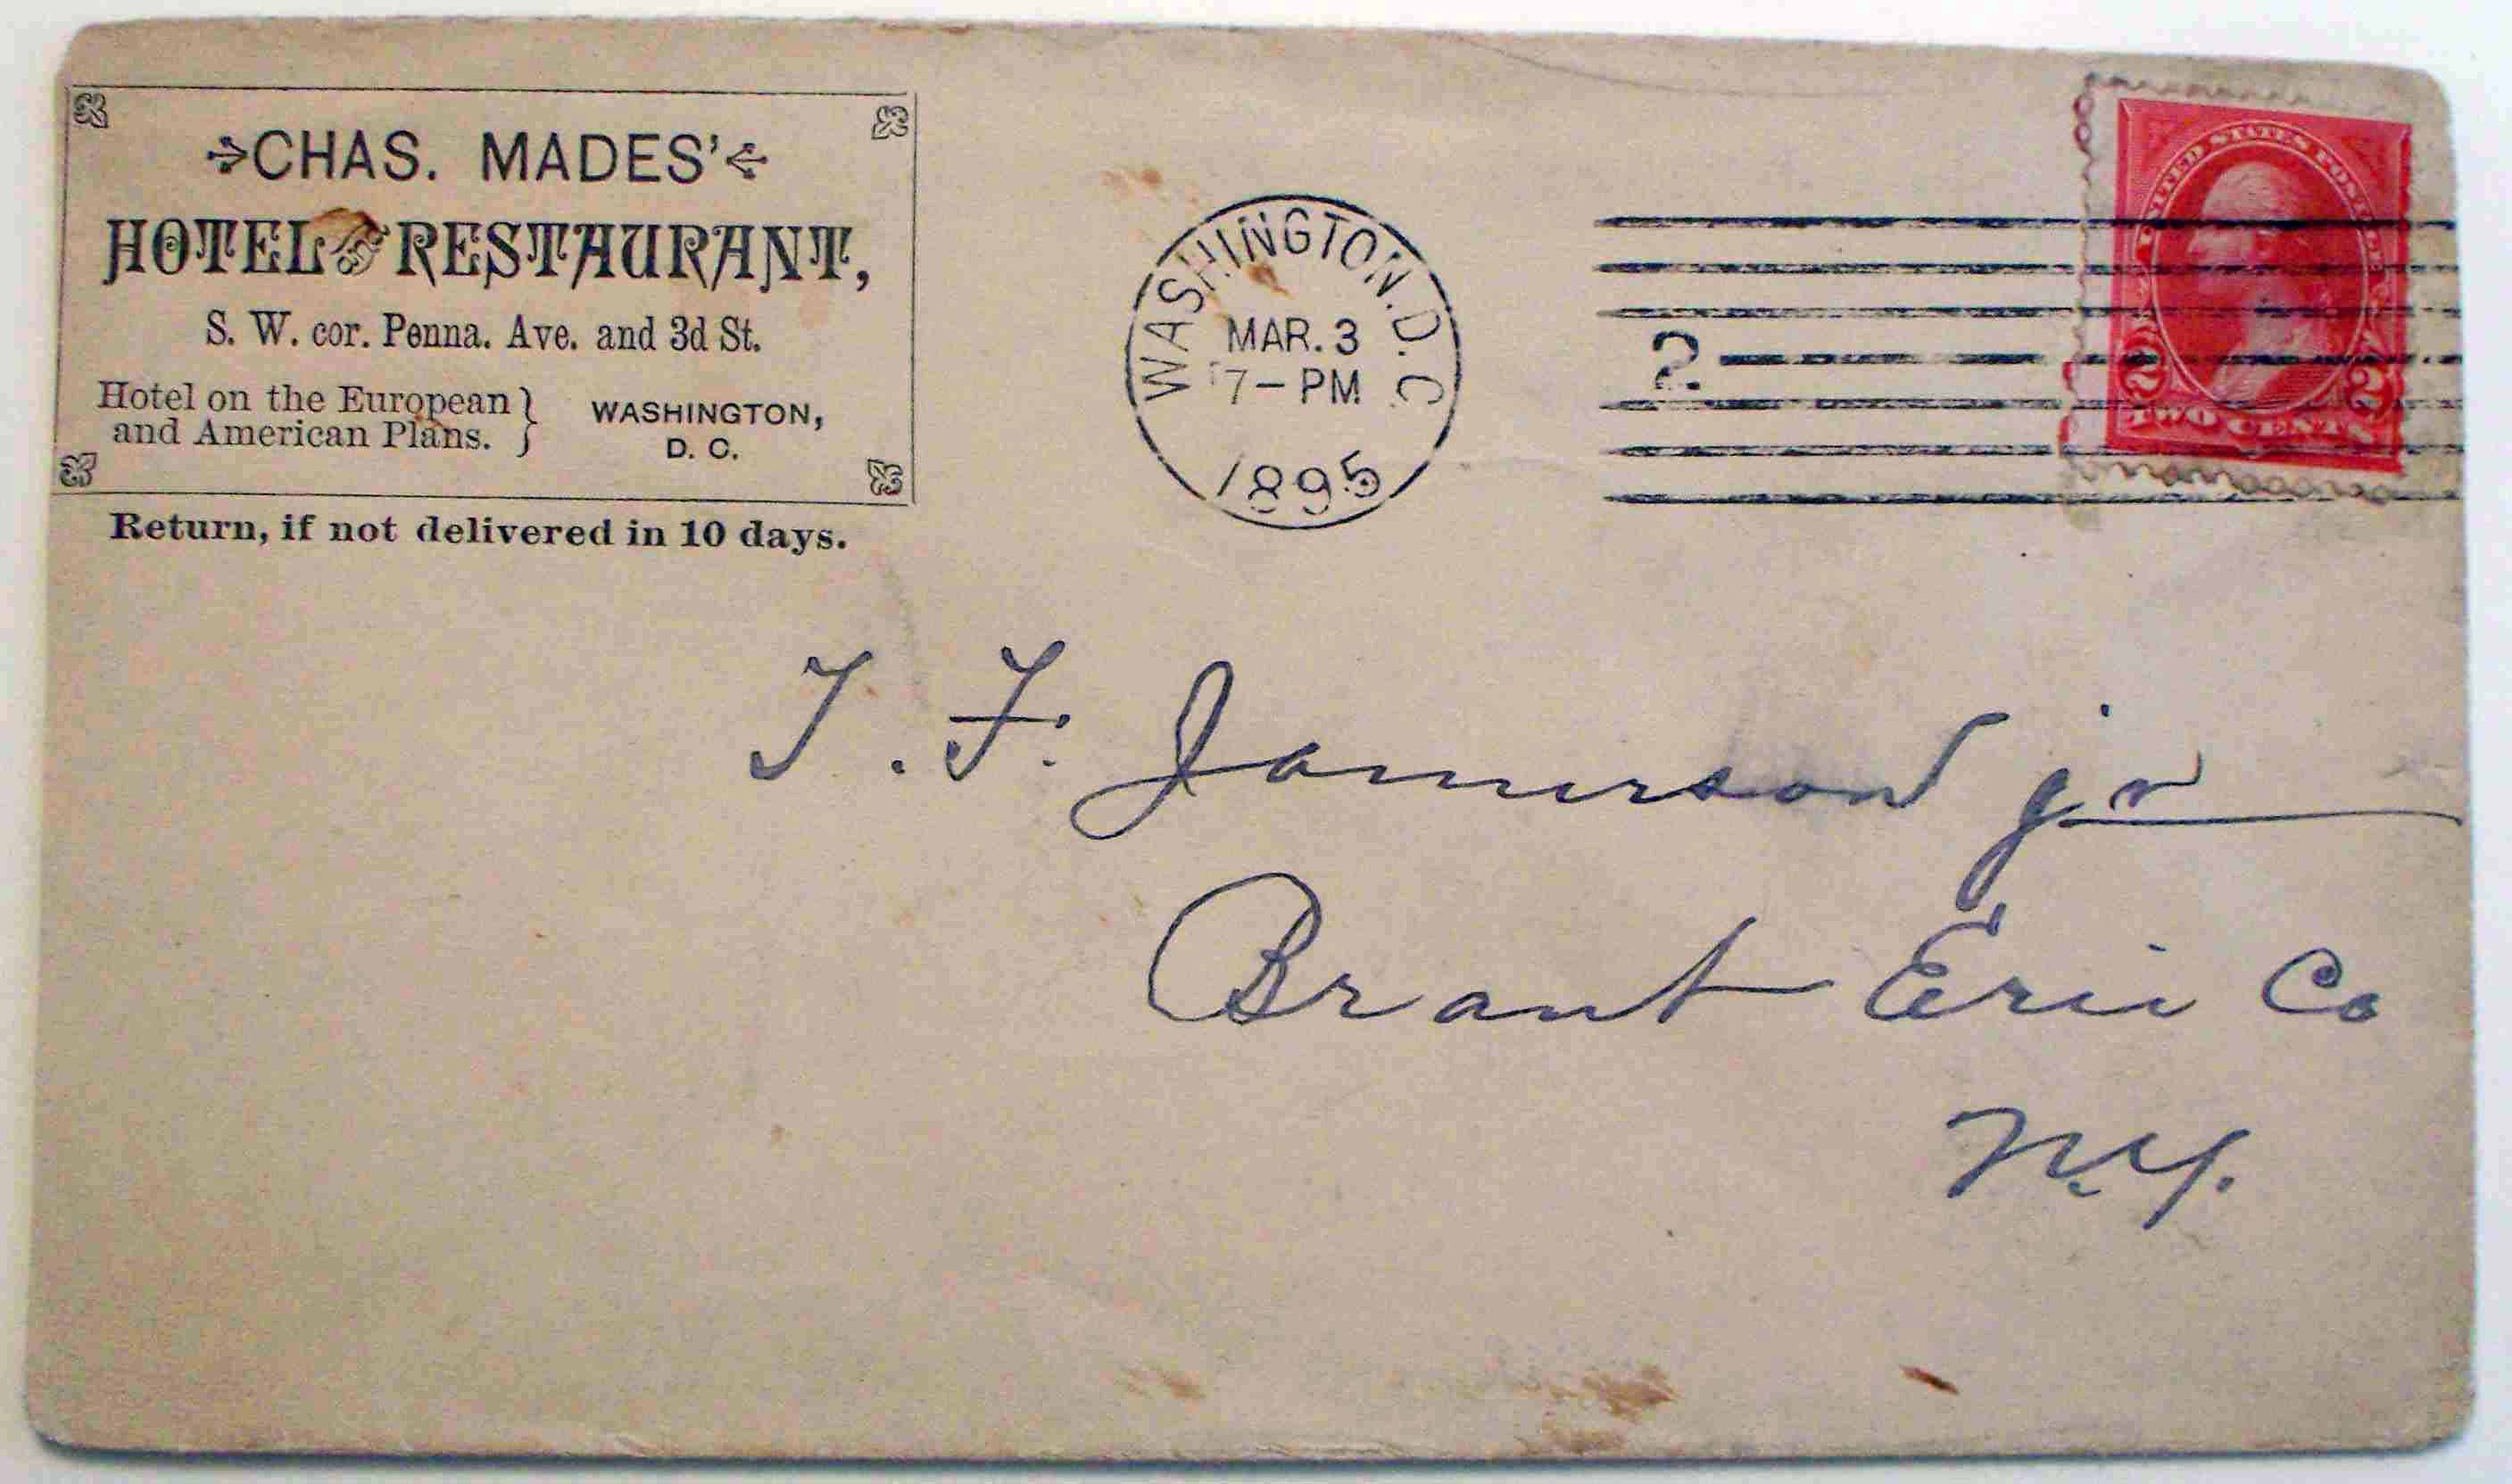 CHAS. MADES'
HOTEL & RESTAURANT,
S. W. cor. Penna. Ave. and 3d St.
Hotel on the European
and American Plans.
WASHINGTON,
D. C.
Return, if not delivered in 10 days.
WASHINGTON. D. C
MAR. 3
7-PM
1895
2
UNITED STATES POSTAGE
2 2
TWO CENTS
T. F. Jamerson jr
Brant Erie Co
N.Y.